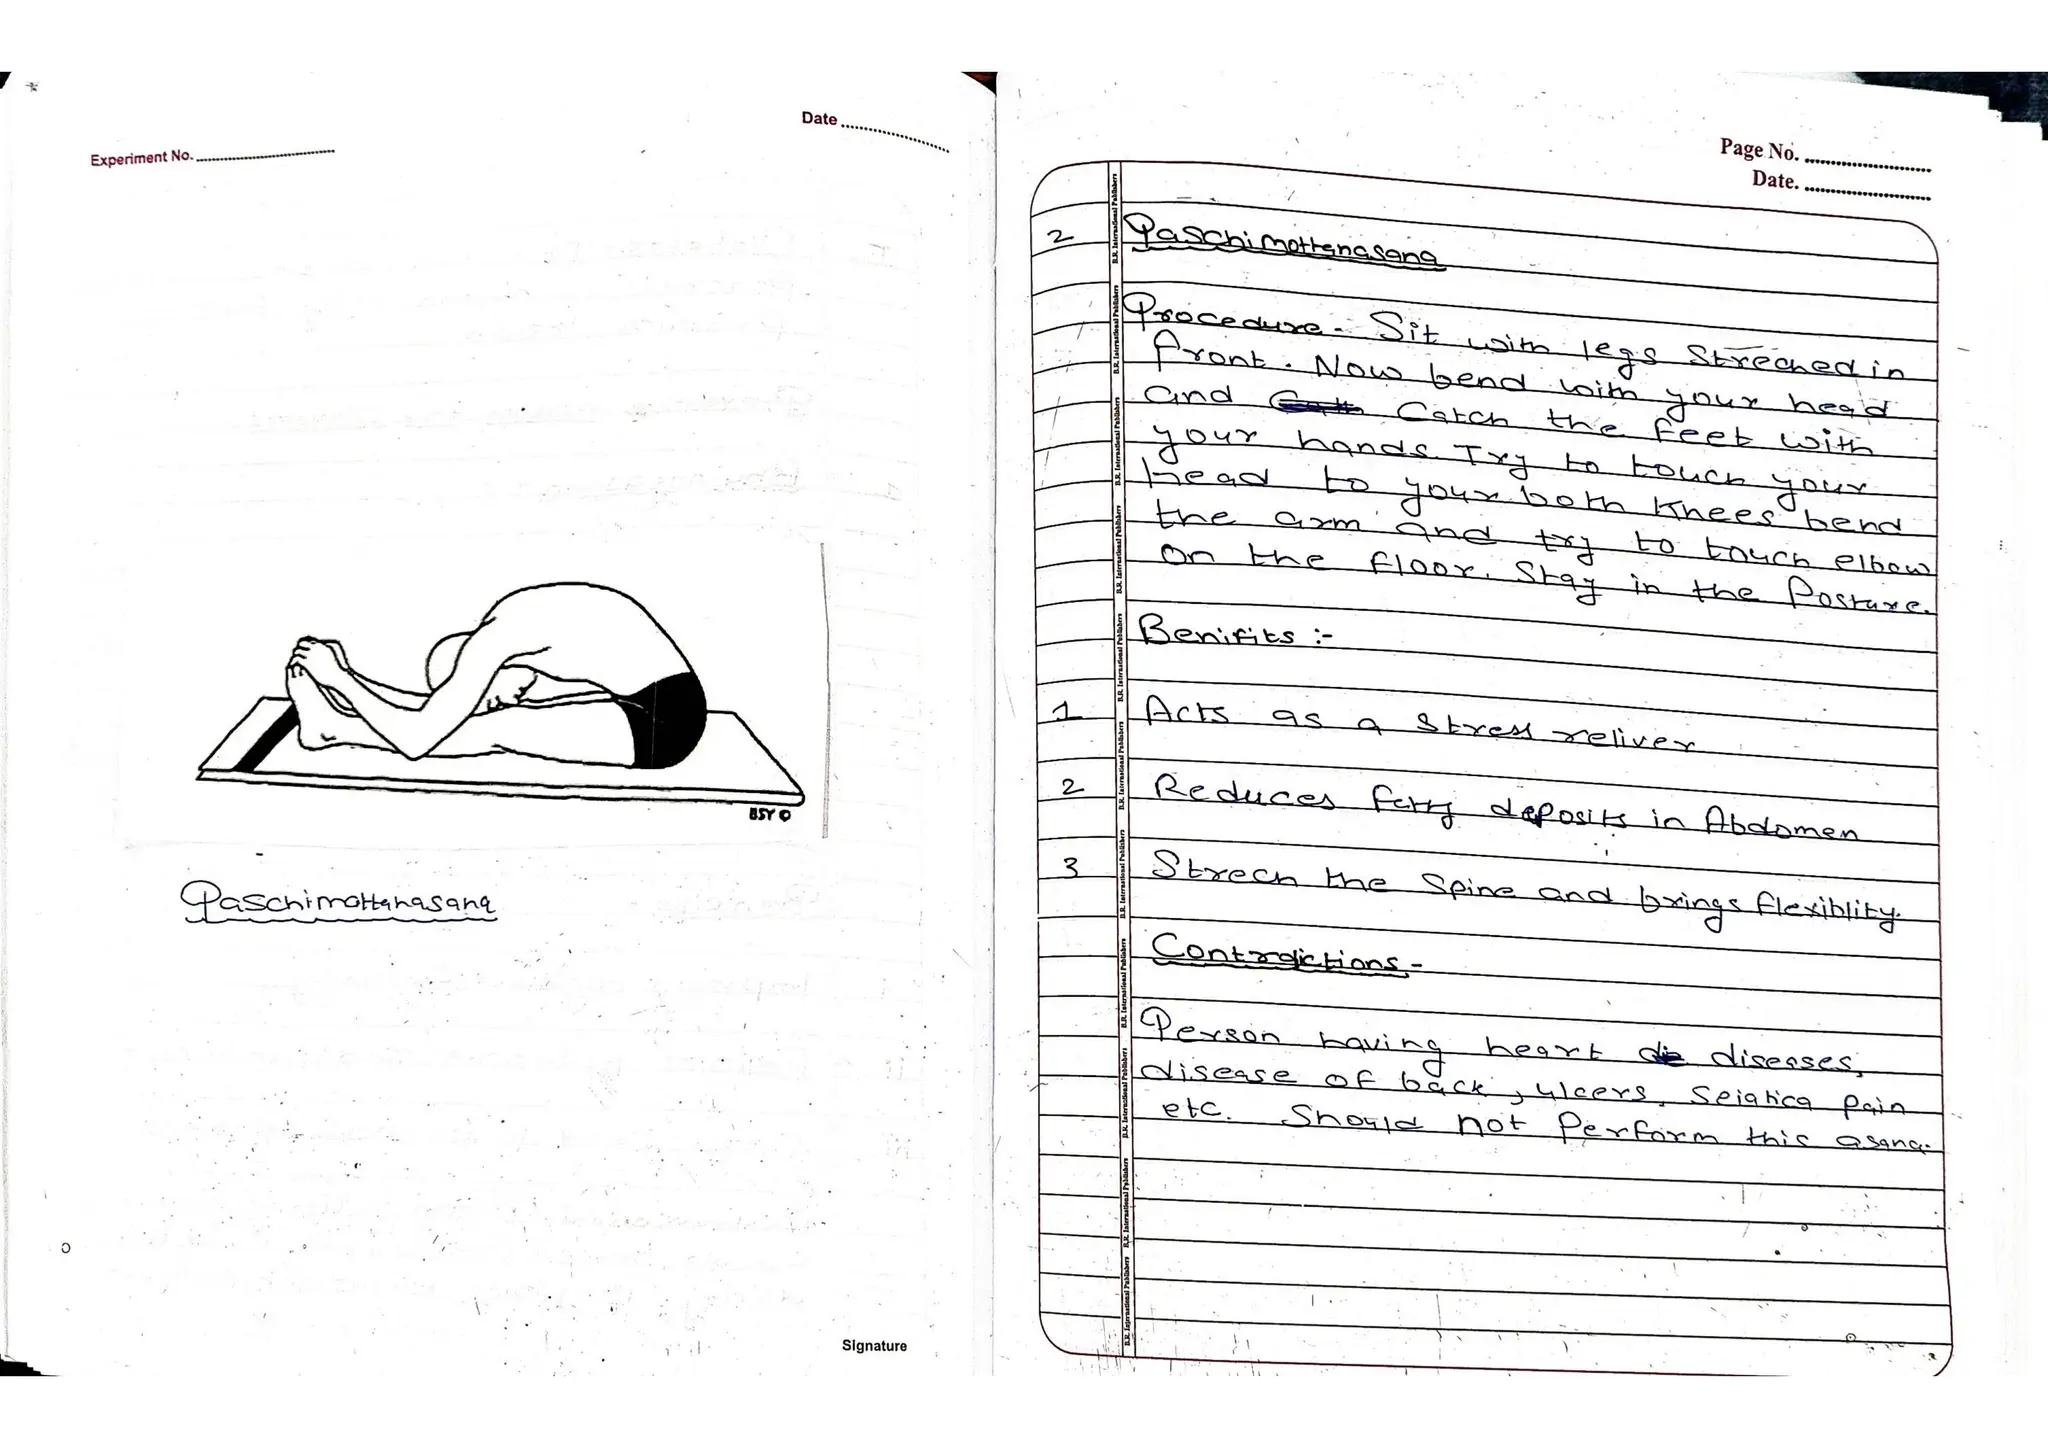 Date
Experiment No.
BSY ©
Paschimottanasana
Signature
Page No.
Date.
2 Paschimottanasana
Procedure - Sit with legs Streched in
front. Now bend with your head
and Catch the feet with
your hands. Try to touch your
head to your both Knees bend
the arm and try to touch elbow
on the floor. Stay in the Posture.
Benifits :-
1 Acts as a stress reliver
2 Reduces fatty deposits in Abdomen
3 Strech the Spine and brings flexiblity.
Contradictions -
Person having heart diseases,
disease of back, ulcers, Seiatica pain
etc. Should not Perform this asana.
B.R. International Publishers